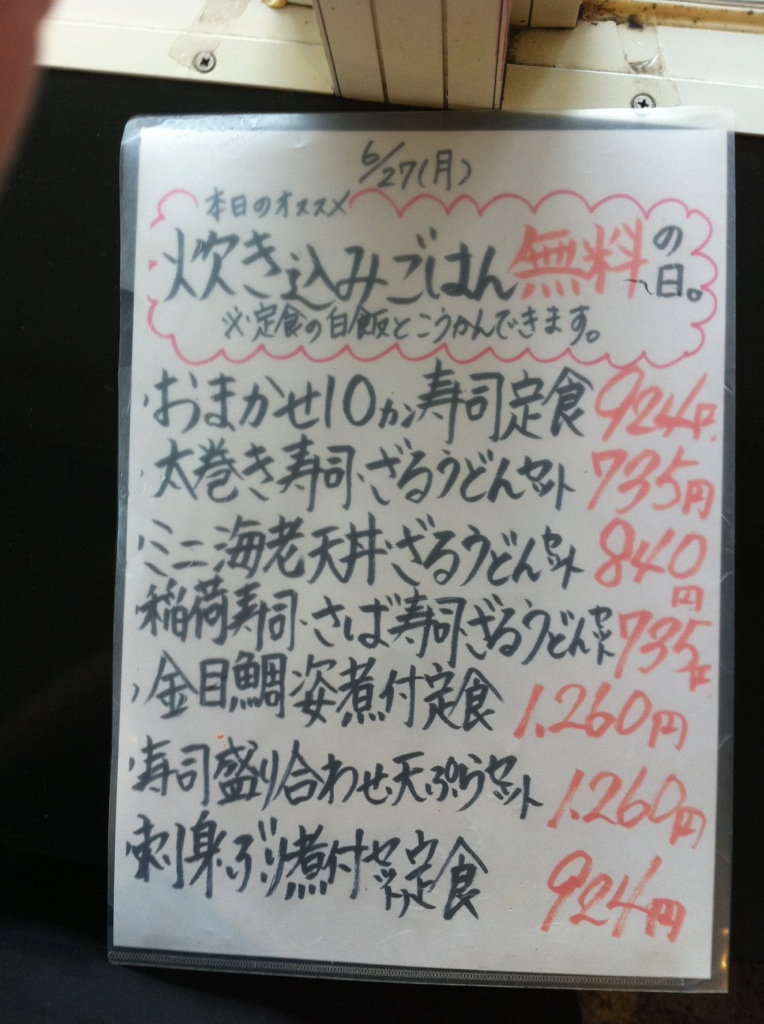 6/27(月)
本日のオススメ
炊き込みごはん無料の日。
※定食の白飯とこうかんできます。
・おまかせ10カン寿司定食 924円
・太巻き寿司・ざるうどんセット 735円
・ミニ海老天丼・ざるうどんセット 840円
・稲荷寿司・さば寿司・ざるうどんセット 735円
・金目鯛姿煮付定食 1,260円
・寿司盛り合わせ・天ぷらセット 1,260円
・刺身・ぶり煮付セット定食 924円